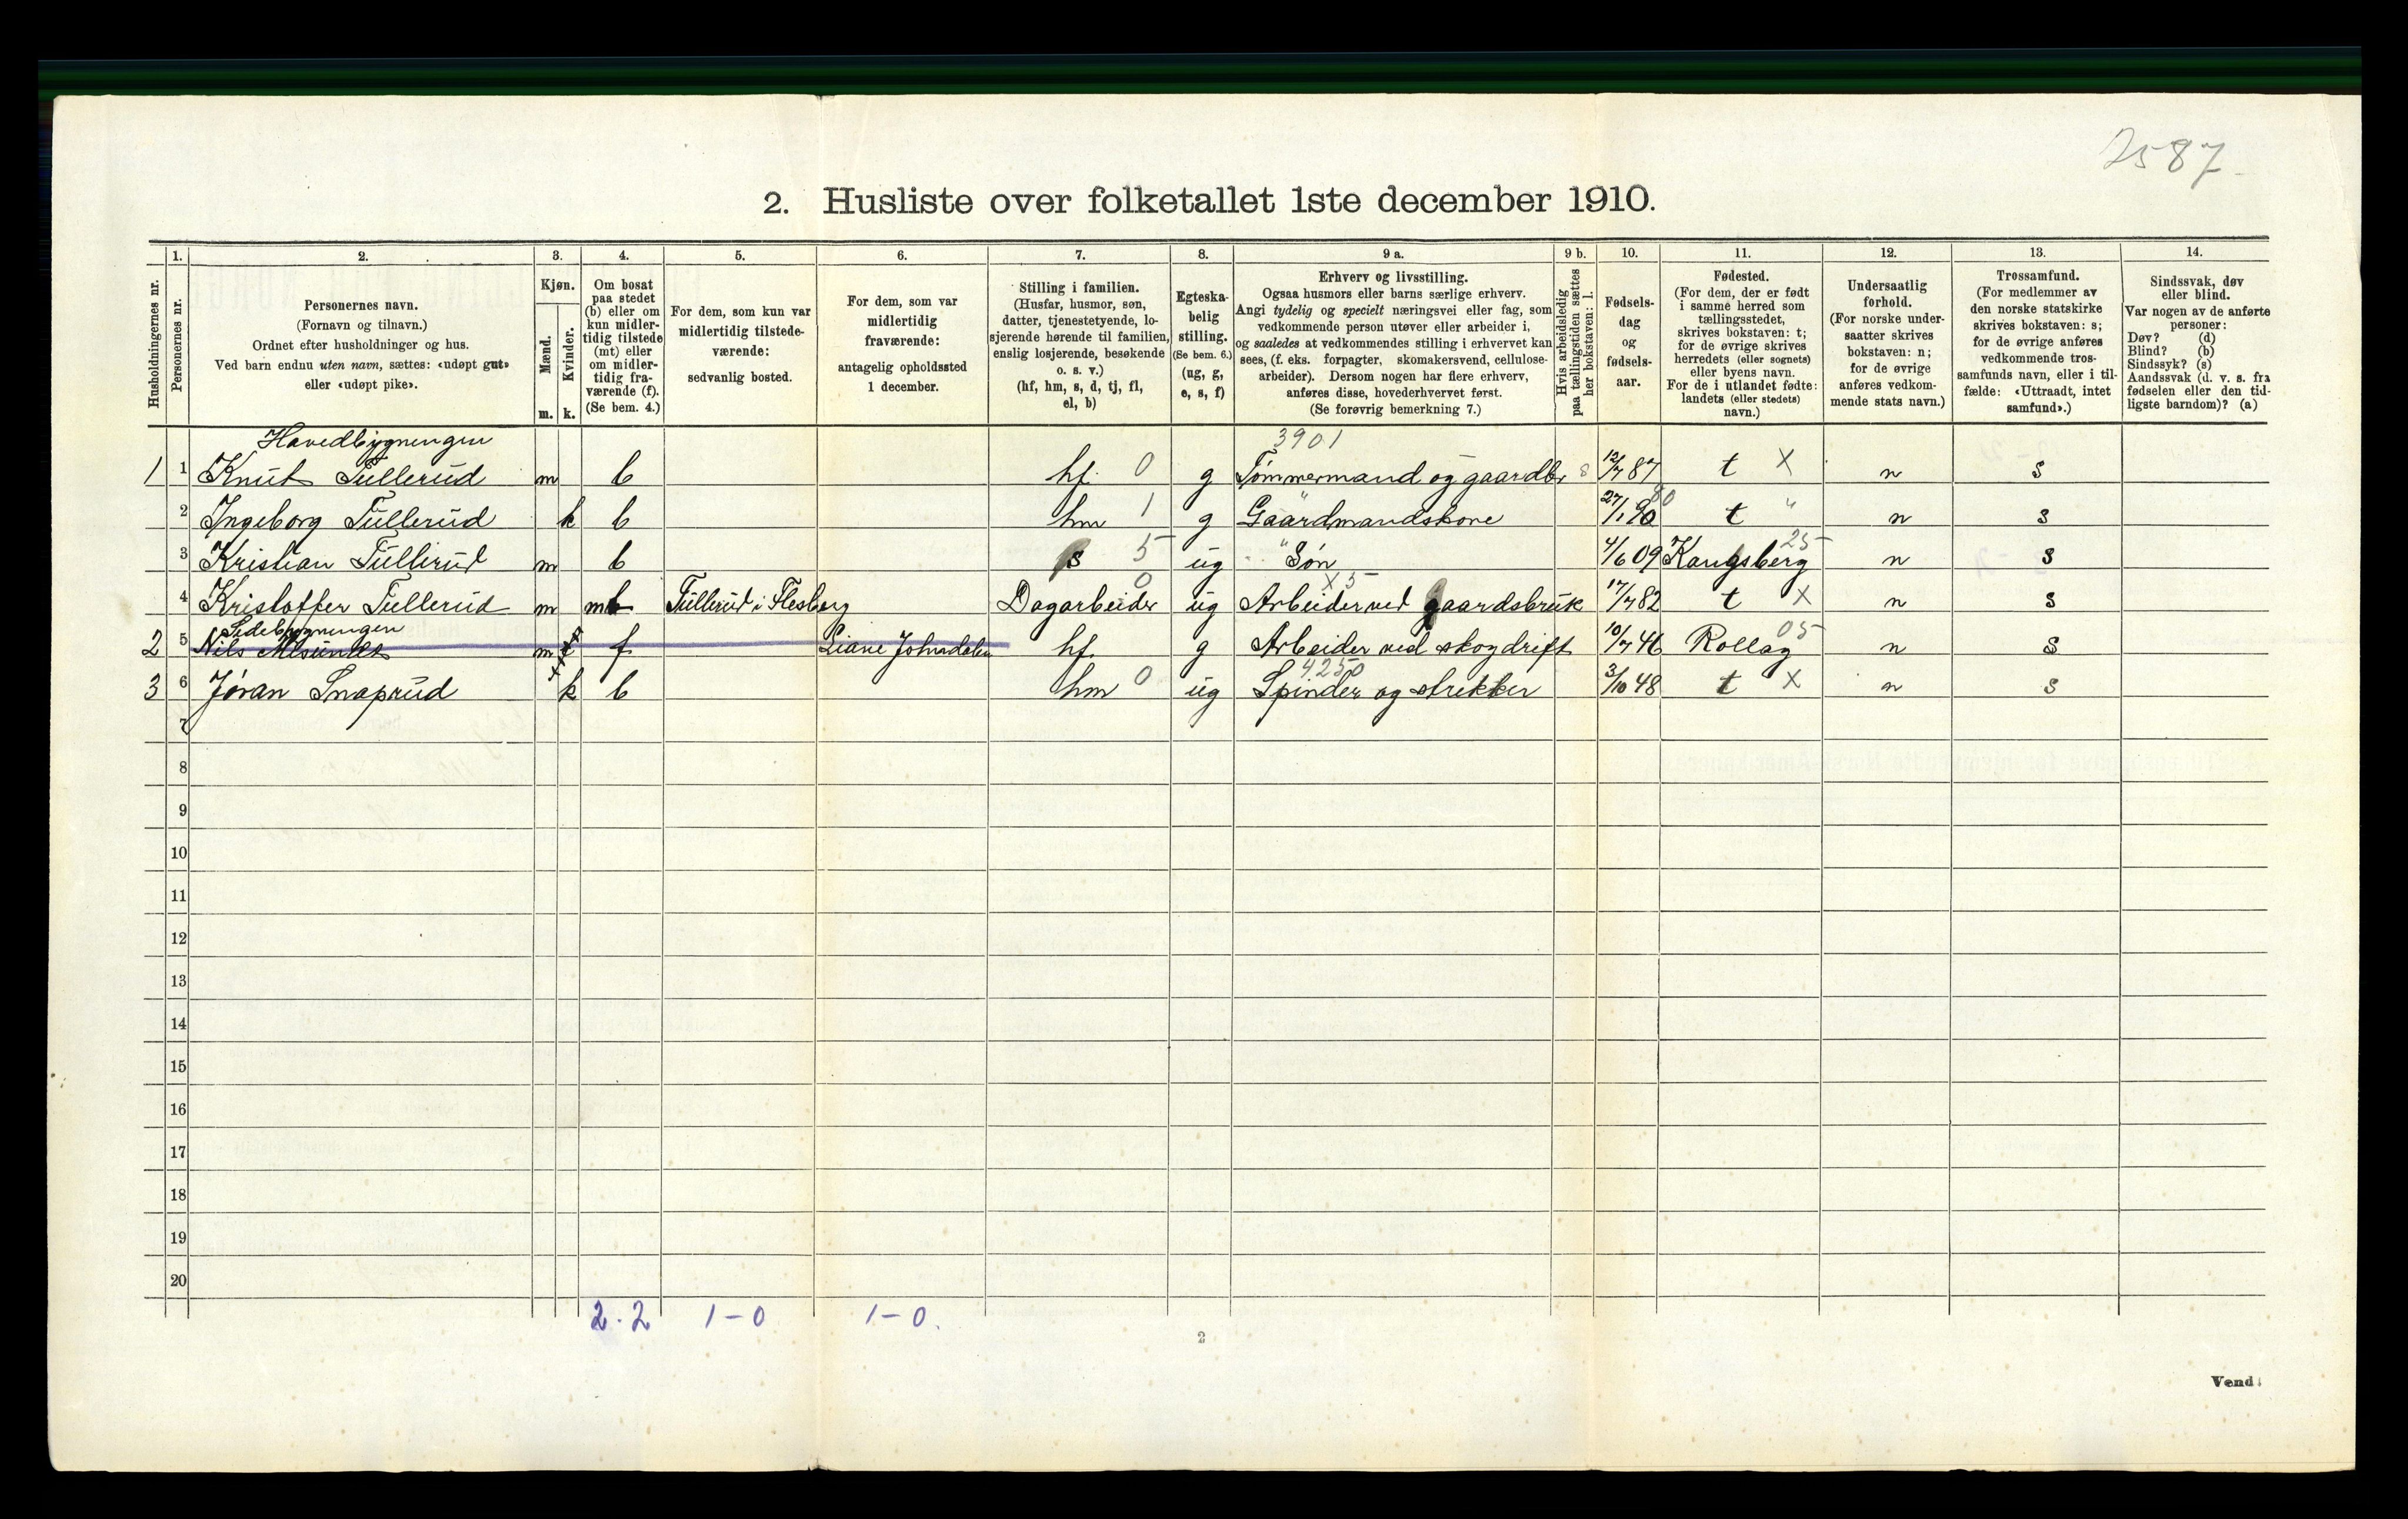 2587
2. Husliste over folketallet 1ste december 1910.
1. 2. 3. 4. 5. 6. 7. 8. 9 a. 9 b. 10. 11. 12. 13. 14.
Husholdningernes nr.
Personernes nr.
Personernes navn.
(Fornavn og tilnavn.)
Ordnet efter husholdninger og hus.
Ved barn endnu uten navn, sættes: «udøpt gut»
eller «udøpt pike».
Kjøn.
Mænd.
Kvinder.
m. k.
Om bosat
paa stedet
(b) eller om
kun midler-
tidig tilstede
(mt) eller
om midler-
tidig fra-
værende (f).
(Se bem. 4.)
For dem, som kun var
midlertidig tilstede-
værende:
sedvanlig bosted.
For dem, som var
midlertidig
fraværende:
antagelig opholdssted
1 december.
Stilling i familien.
(Husfar, husmor, søn,
datter, tjenestetyende, lo-
sjerende hørende til familien,
enslig losjerende, besøkende
o. s. v.)
(hf, hm, s, d, tj, fl,
el, b)
Egteska-
belig
stilling.
(Se bem. 6.)
(ug, g,
e, s, f)
Erhverv og livsstilling.
Ogsaa husmors eller barns særlige erhverv.
Angi tydelig og specielt næringsvei eller fag, som
vedkommende person utøver eller arbeider i,
og saaledes at vedkommendes stilling i erhvervet kan
sees, (f. eks. forpagter, skomakersvend, cellulose-
arbeider). Dersom nogen har flere erhverv,
anføres disse, hovederhvervet først.
(Se forøvrig bemerkning 7.)
Hvis arbeidsledig
paa tællingstiden sættes
her bokstaven: l.
Fødsels-
dag
og
fødsels-
aar.
Fødested.
(For dem, der er født
i samme herred som
tællingsstedet,
skrives bokstaven: t;
for de øvrige skrives
herredets (eller sognets)
eller byens navn.
For de i utlandet fødte:
landets (eller stedets)
navn.)
Undersaatlig
forhold.
(For norske under-
saatter skrives
bokstaven: n;
for de øvrige
anføres vedkom-
mende stats navn.)
Trossamfund.
(For medlemmer av
den norske statskirke
skrives bokstaven: s;
for de øvrige anføres
vedkommende tros-
samfunds navn, eller i til-
fælde: «Uttraadt, intet
samfund».)
Sindssvak, døv
eller blind.
Var nogen av de anførte
personer:
Døv? (d)
Blind? (b)
Sindssyk? (s)
Aandssvak (d. v. s. fra
fødselen eller den tid-
ligste barndom)? (a)
Havedbygningen 3901
1 1 Knut Tullerud m b hf. 0 g Tømmermand og gaardbr 12/7 87 t X n s
2 Ingeborg Tullerud k b hm 1 g Gaardmandskone 27/1 90 80 t " n s
3 Kristian Tullerud m b s 5 ug " Søn 4/6 09 Kongsberg 25 n s
4 Kristoffer Tullerud m mt Tullerud i Flesberg Dagarbeider 0 ug Arbeider ved gaardsbruk X 5 17/7 82 t X n s
Sidebygningen
2 5 Nils m f Liane Johnsdalen hf. g Arbeider ved skogdrift 10/7 46 Rollag 05 n s
4250
3 6 Jøran Snaprud k b hm 0 ug Spinder og strekker 3/10 48 t X n s
7
8
9
10
11
12
13
14
15
16
17
18
19
20
2 . 2 1 - 0 1 - 0.
2
Vend!